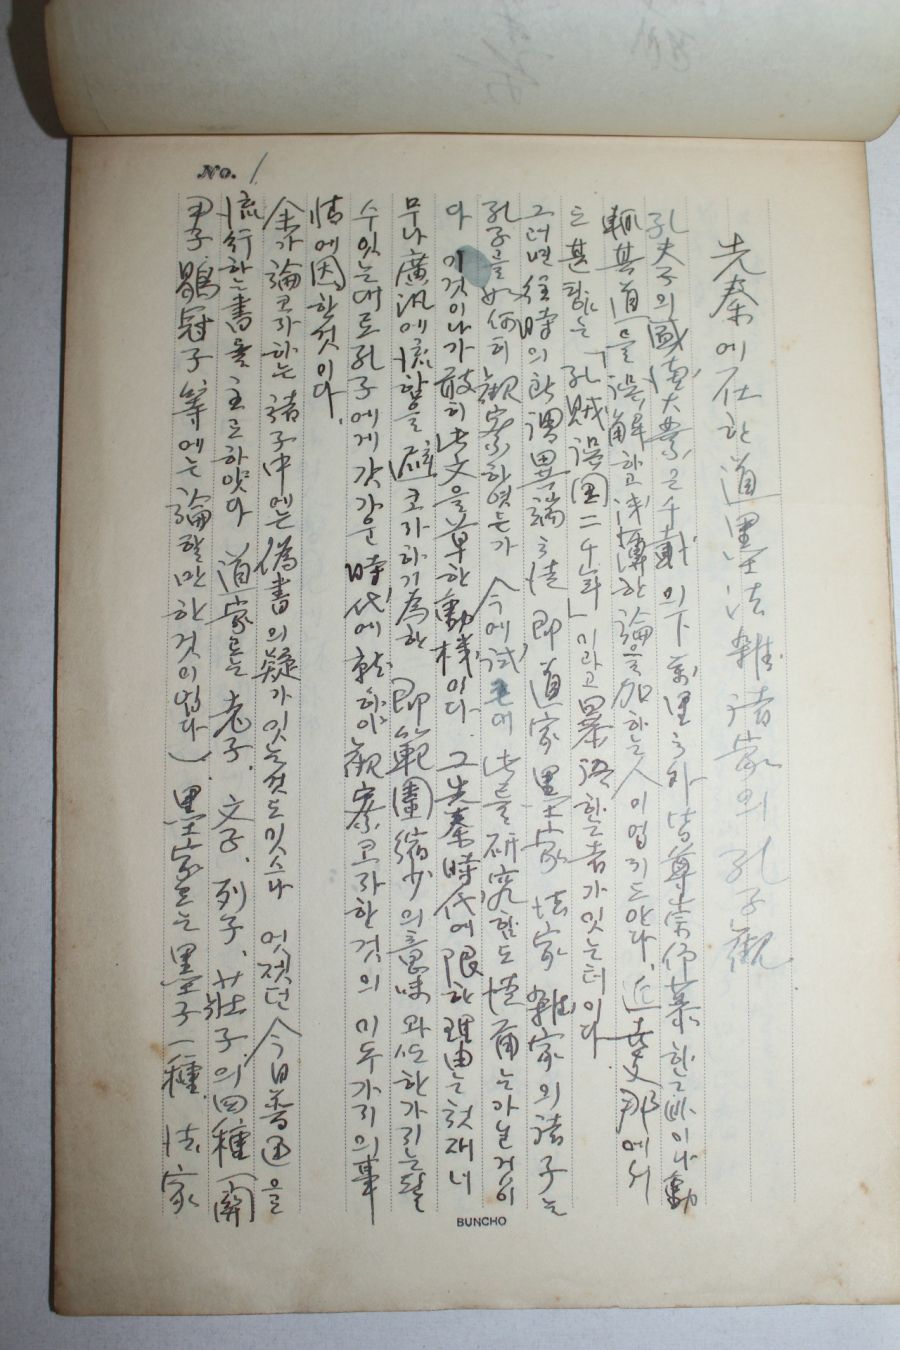 No. 1
先秦에 在한 道墨法雜諸家의 孔子觀
孔夫子의 國濟大業은 千載의 下 萬里之外 皆尊崇仰慕한 바이나 動
輒 其道를 誤解하고 浅薄한 論을 加하는 人이 업기도 안타. 近安 支那에서
는 甚함은 「孔賊誤国二千年」이라고 暴 하는 者가 잇는 터이다.
그러면 往時의 所謂 異端之徒 即 道家 墨家 法家 雜家의 諸子는
孔子를 如何히 観察하엿는가 今에 試 此를 研究함도 徒爾는 아닐 것이
다 이것이 나가 敢히 此文을 草한 動機이다. 그 先秦時代에 限한 理由는 첫재 너
무나 廣汎에 流함을 避코자 하기 為한 即 範圍縮少의 意味와 또 한 가지는 될
수 잇는 대로 孔子에게 갓가운 時代에 就하야 観察코자 한 것의 이 두 가지의 事
情에 因한 것이다.
余가 論코자 하는 諸子中에는 偽書의 疑가 잇는 것도 잇스나 엇젯던 今日 普通을
流行하는 書을 主로 하얏다 道家로는 老子. 文子. 列子. 莊子.의 四種 (關
尹子 鶡冠子 等에는 論할 만한 것이 업다) 墨家로는 墨子 一種. 法家
BUNCHO